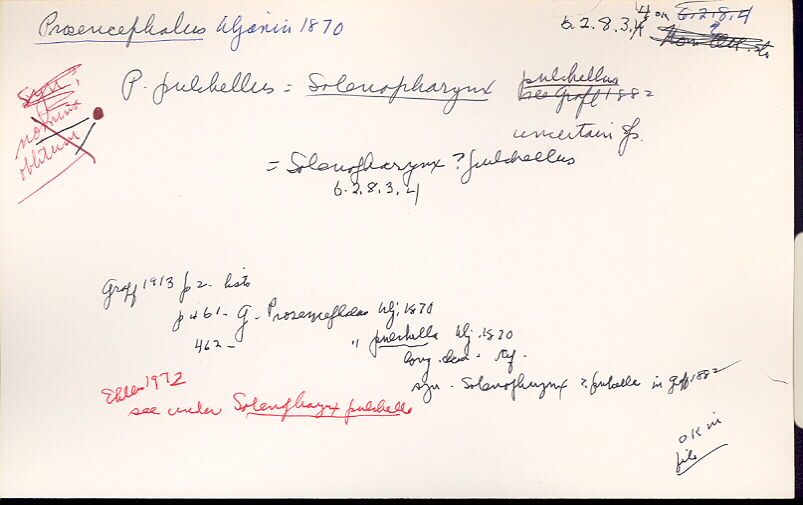 Prosencephalus Uljanin 1870
6.2.8.3.4
4 or 6.2.8.4
?
P. pulchellus = Solenopharynx pulchellus
see Graff 1882
syn?
nomina
oblitum
uncertain sp.
= Solenopharynx ? pulchellus
6.2.8.3.4
Graff 1913 p 2 - lists
p 461 - G. Prosencephalus Ulj. 1870
462 - " pulchella Ulj. 1870
syn - Solenopharynx ? pulchella in Graff 1882
Ehlers 1972
see under Solenopharynx pulchella
OK in
file